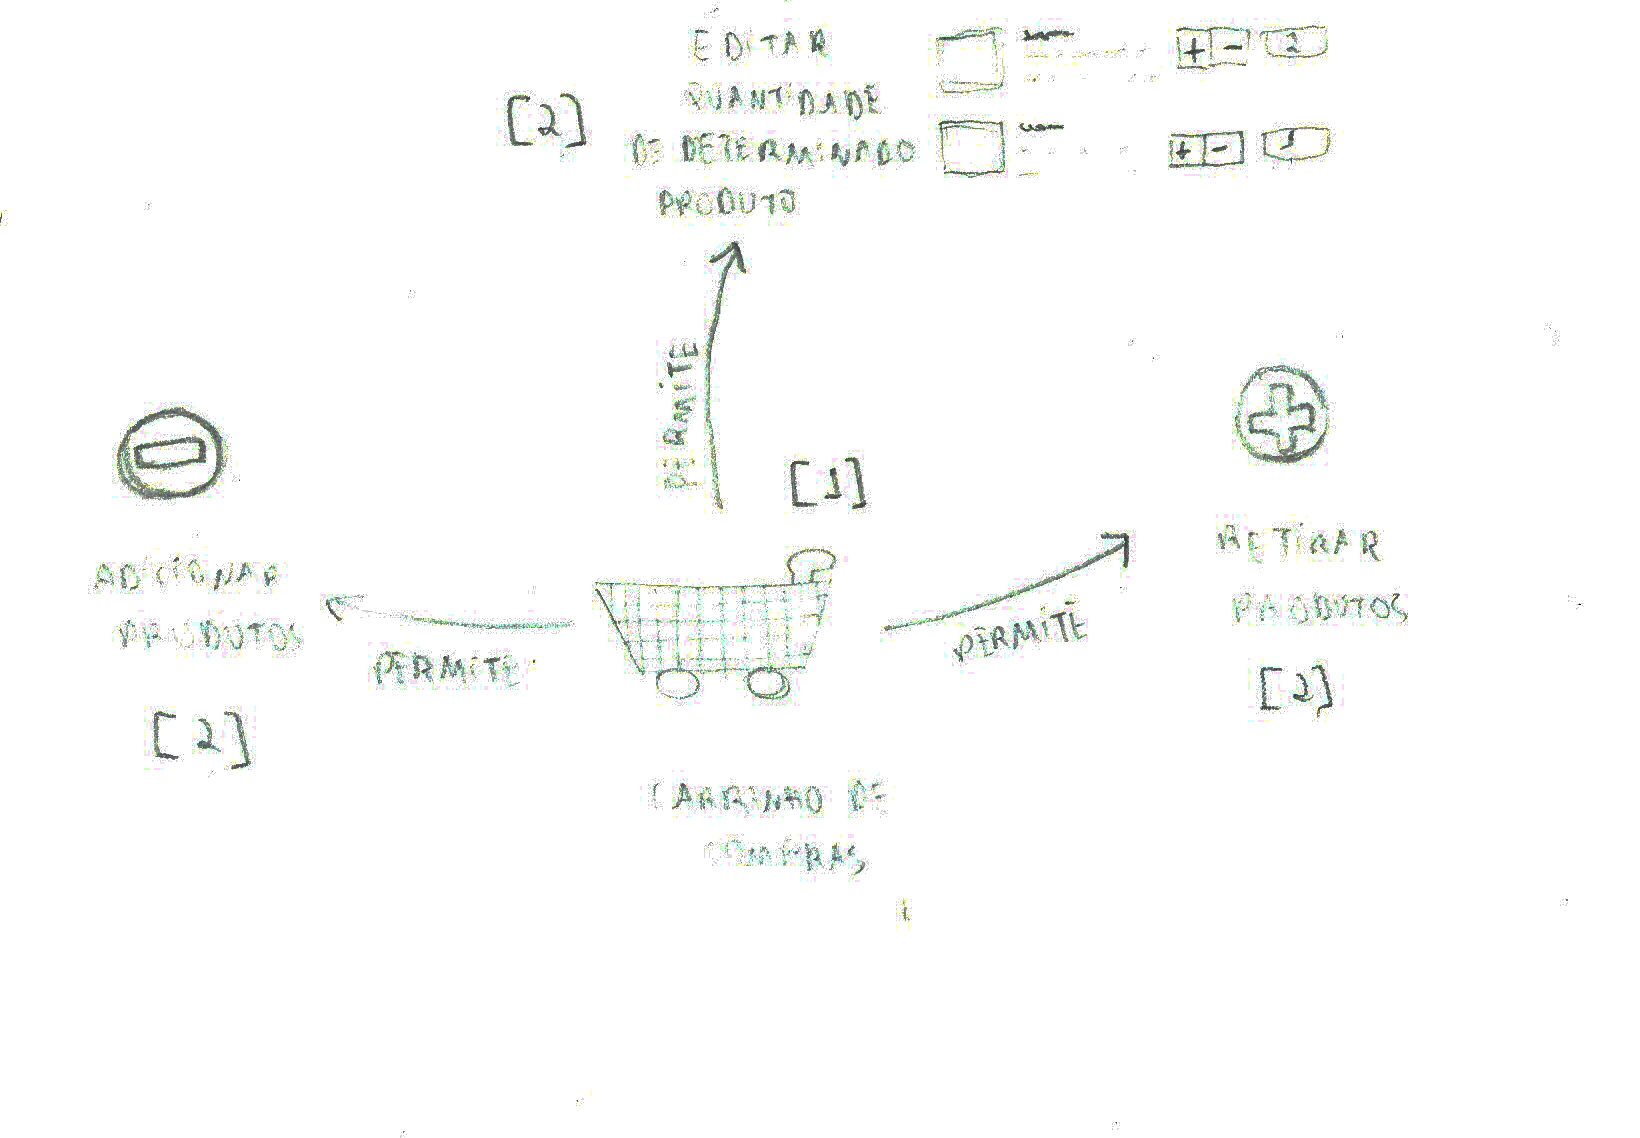 EDITAR
QUANTIDADE
DE DETERMINADO
PRODUTO
[2]
+ - 2
+ - 1
PERMITE
[1]
ADICIONAR
PRODUTOS
[2]
PERMITE
PERMITE
RETIRAR
PRODUTOS
[2]
CARRINHO DE
COMPRAS